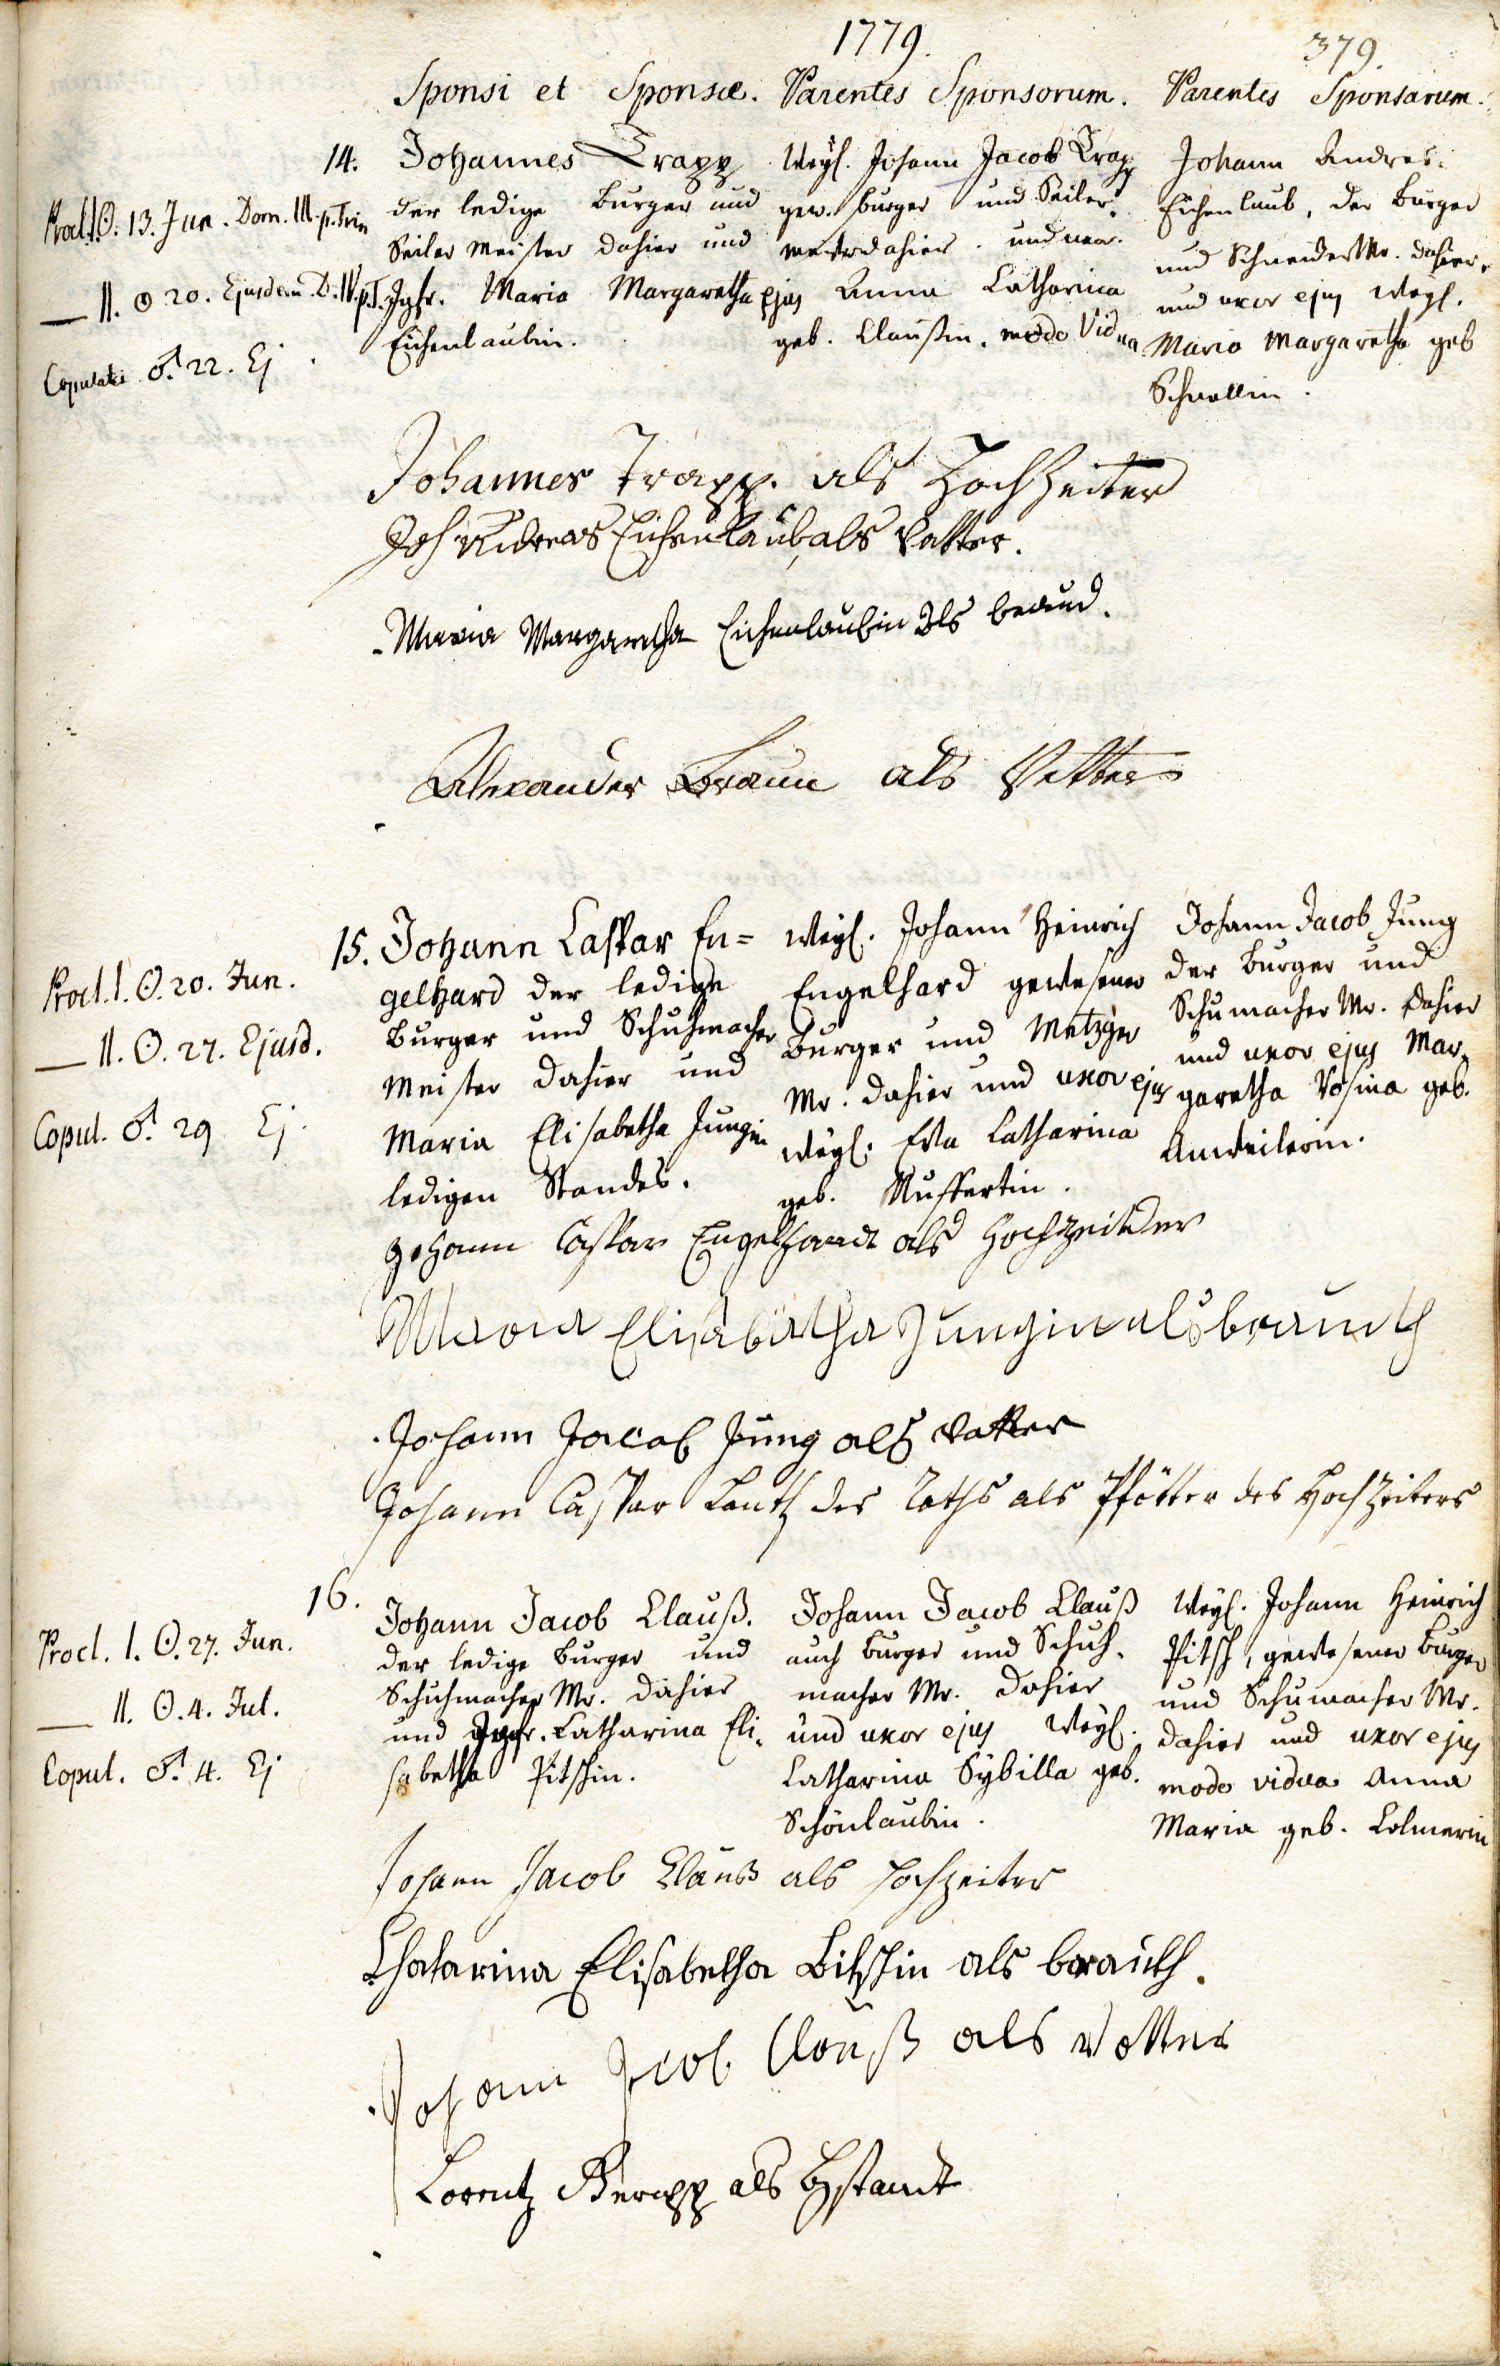 1779.
379.
Sponsi et Sponsae. Parentes Sponsorum. Parentes Sponsarum.
Procl. I. ☉. 13. Jun. Dom. III. p. Trin
— II. ☉ 20. Ejusdem D. IV. p. T.
Copulati ♂. 22. Ej.
14. Johannes Trapp
der ledige Burger und
Seiler Meister dahier und
Jgfr. Maria Margaretha
Eichenlaubin.
Weyl. Johann Jacob Trapp
gew. Burger und Seiler-
meister dahier. und uxor.
ejus Anna Catharina
geb. Claußin. modo Vidua
Johann Andreas
Eichenlaub, der Burger
und Schneider Mr. dahier,
und uxor ejus Weyl.
Maria Margaretha geb
Schnellin.
Johannes Trapp. als Hochzeiter
Joh Andreas Eichenlaub, als Vatter.
Maria Margaretha Eichenlaubin als braud.
Alexander Braun als Vetter
Procl. I. ☉. 20. Jun.
— II. ☉. 27. Ejusd.
Copul. ♂. 29 Ej.
15. Johann Caspar En=
gelhard der ledige
Burger und Schuhmacher
Meister dahier und
Maria Elisabetha Jungin
ledigen Standes.
Weyl. Johann Heinrich
Engelhard gewesener
Burger und Metzger
Mr. dahier und uxor ejus
Weyl. Eva Catharina
geb. Nuffertin.
Johann Jacob Jung
der Burger und
Schumacher Mr. dahier
und uxor ejus Mar-
garetha Rosina geb.
Anweilerin.
Johann Caspar Engelhardt als Hochzeitder
Maria Elisabetha Jungin als brauth
Johann Jacob Jung als Vatter
Johann Caspar Lauth des Raths als Pfötter des Hochzeiters
Procl. I. ☉. 27. Jun.
— II. ☉. 4. Jul.
Copul. ♂. 4. Ej
16.
Johann Jacob Clauß.
der ledige Burger und
Schuhmacher Mr. dahier
und Jgfr. Catharina Eli-
sabetha Pitschin.
Johann Jacob Clauß
auch Burger und Schuh-
macher Mr. dahier
und uxor ejus Weyl.
Catharina Sybilla geb.
Schönlaubin.
Weyl. Johann Heinrich
Pitsch, gewesener Burger
und Schumacher Mr.
dahier und uxor ejus
modo vidua Anna
Maria geb. Colmerin
Johann Jacob Clauß als Hochzeiter
Chatarina Elisabetha Bitschin als brauth.
Johann Jcob Clauß als Vatter
Lorentz als Bystandt